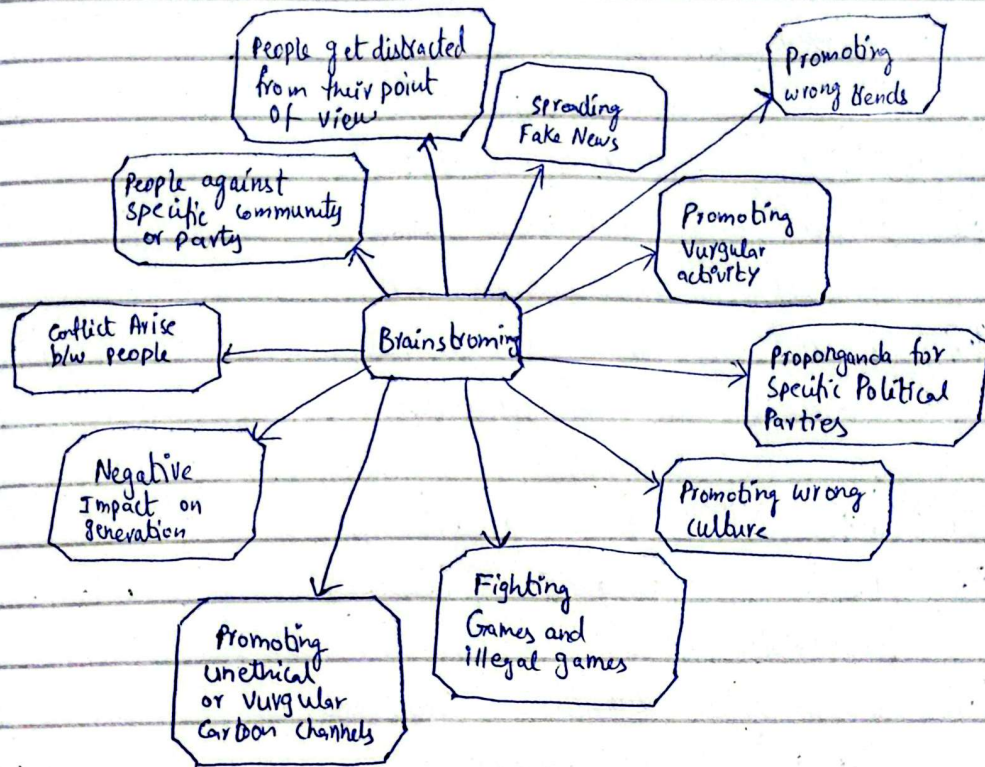 People get distracted
from their point
Of view
Spreading
Fake News
Promoting
wrong trends
People against
specific community
or party
Promoting
Vurgular
activity
Conflict Arise
b/w people
Brainstroming
Proponganda for
Specific Political
Parties
Negative
Impact on
generation
Promoting wrong
culture
Promoting
unethical
or vurgular
Cartoon Channels
Fighting
Games and
illegal games